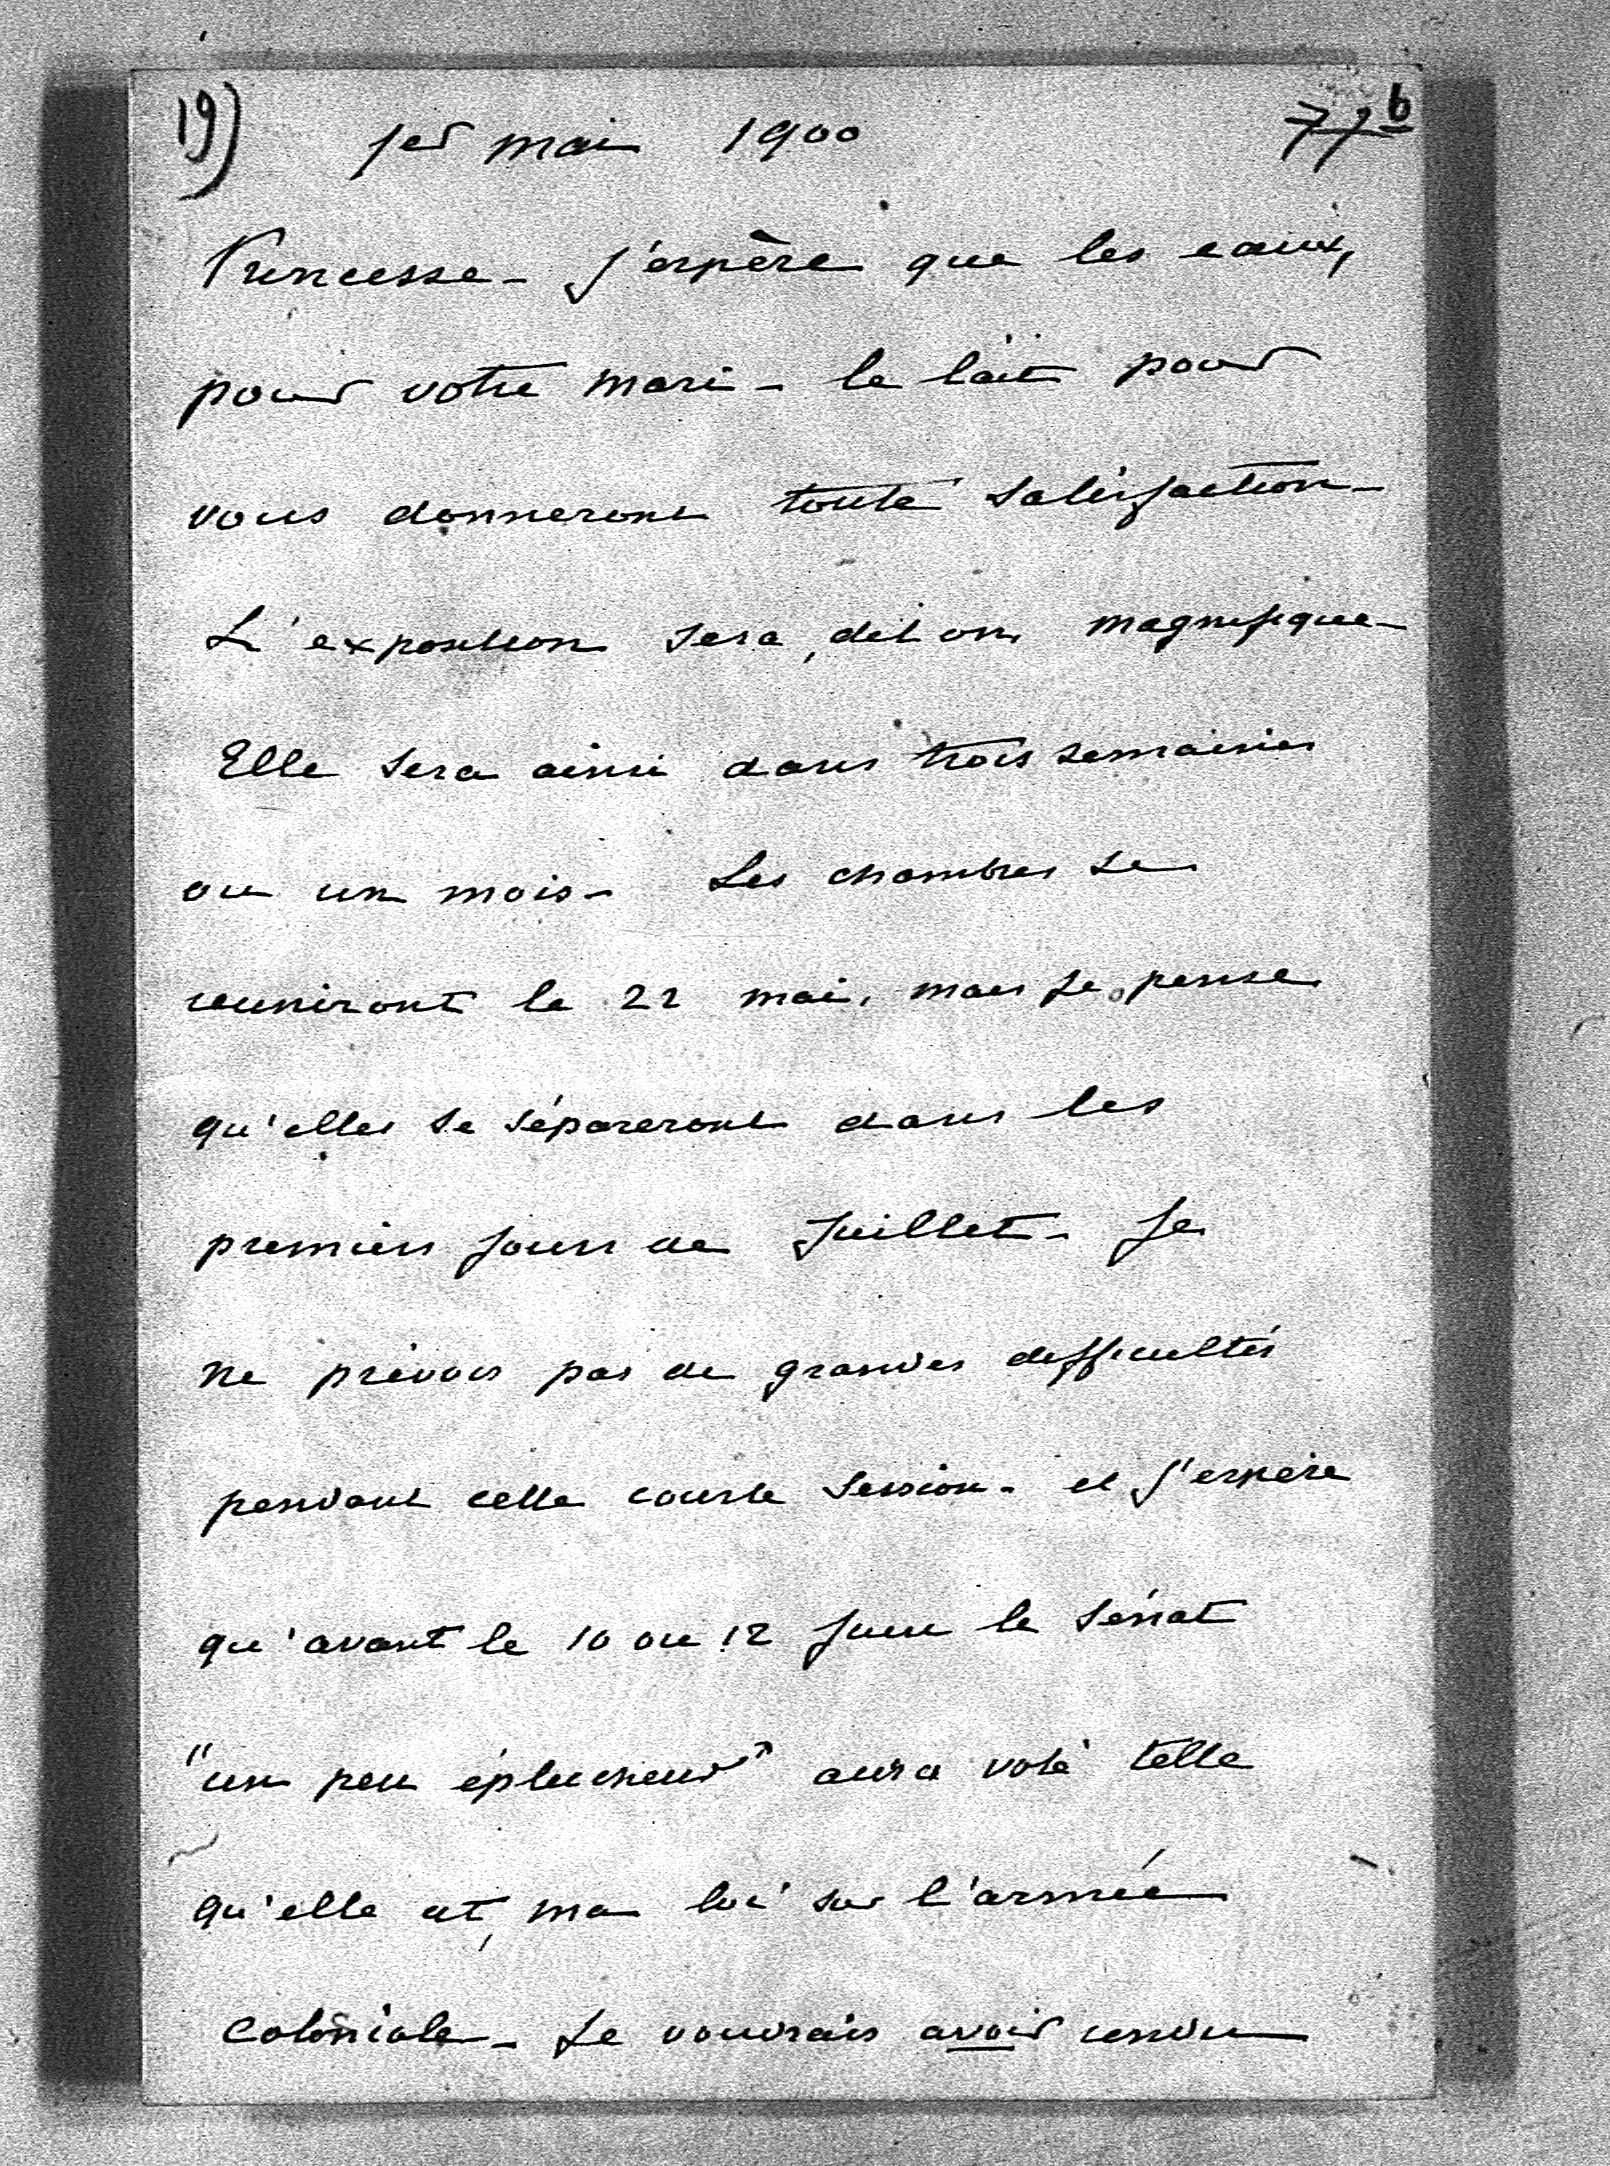 19) 1er mai 1900 77 b
Princesse - J'espère que les eaux,
pour votre mari - le lait pour
vous donneront toute satisfaction -
L'exposition sera, dit on, magnifique -
Elle sera ainsi dans trois semaines
ou un mois - Les chambres se
reuniront le 22 mai, mais je pense
qu'elles se sépareront dans les
premiers jours de Juillet - Je
ne prévois pas de grandes difficultés
pendant cette courte session - et J'espère
qu'avant le 10 ou 12 Juin le Sénat
"un peu éplucheur" aura voté telle
qu'elle est, ma loi sur l'armée
coloniale - Je voudrais avoir rendu